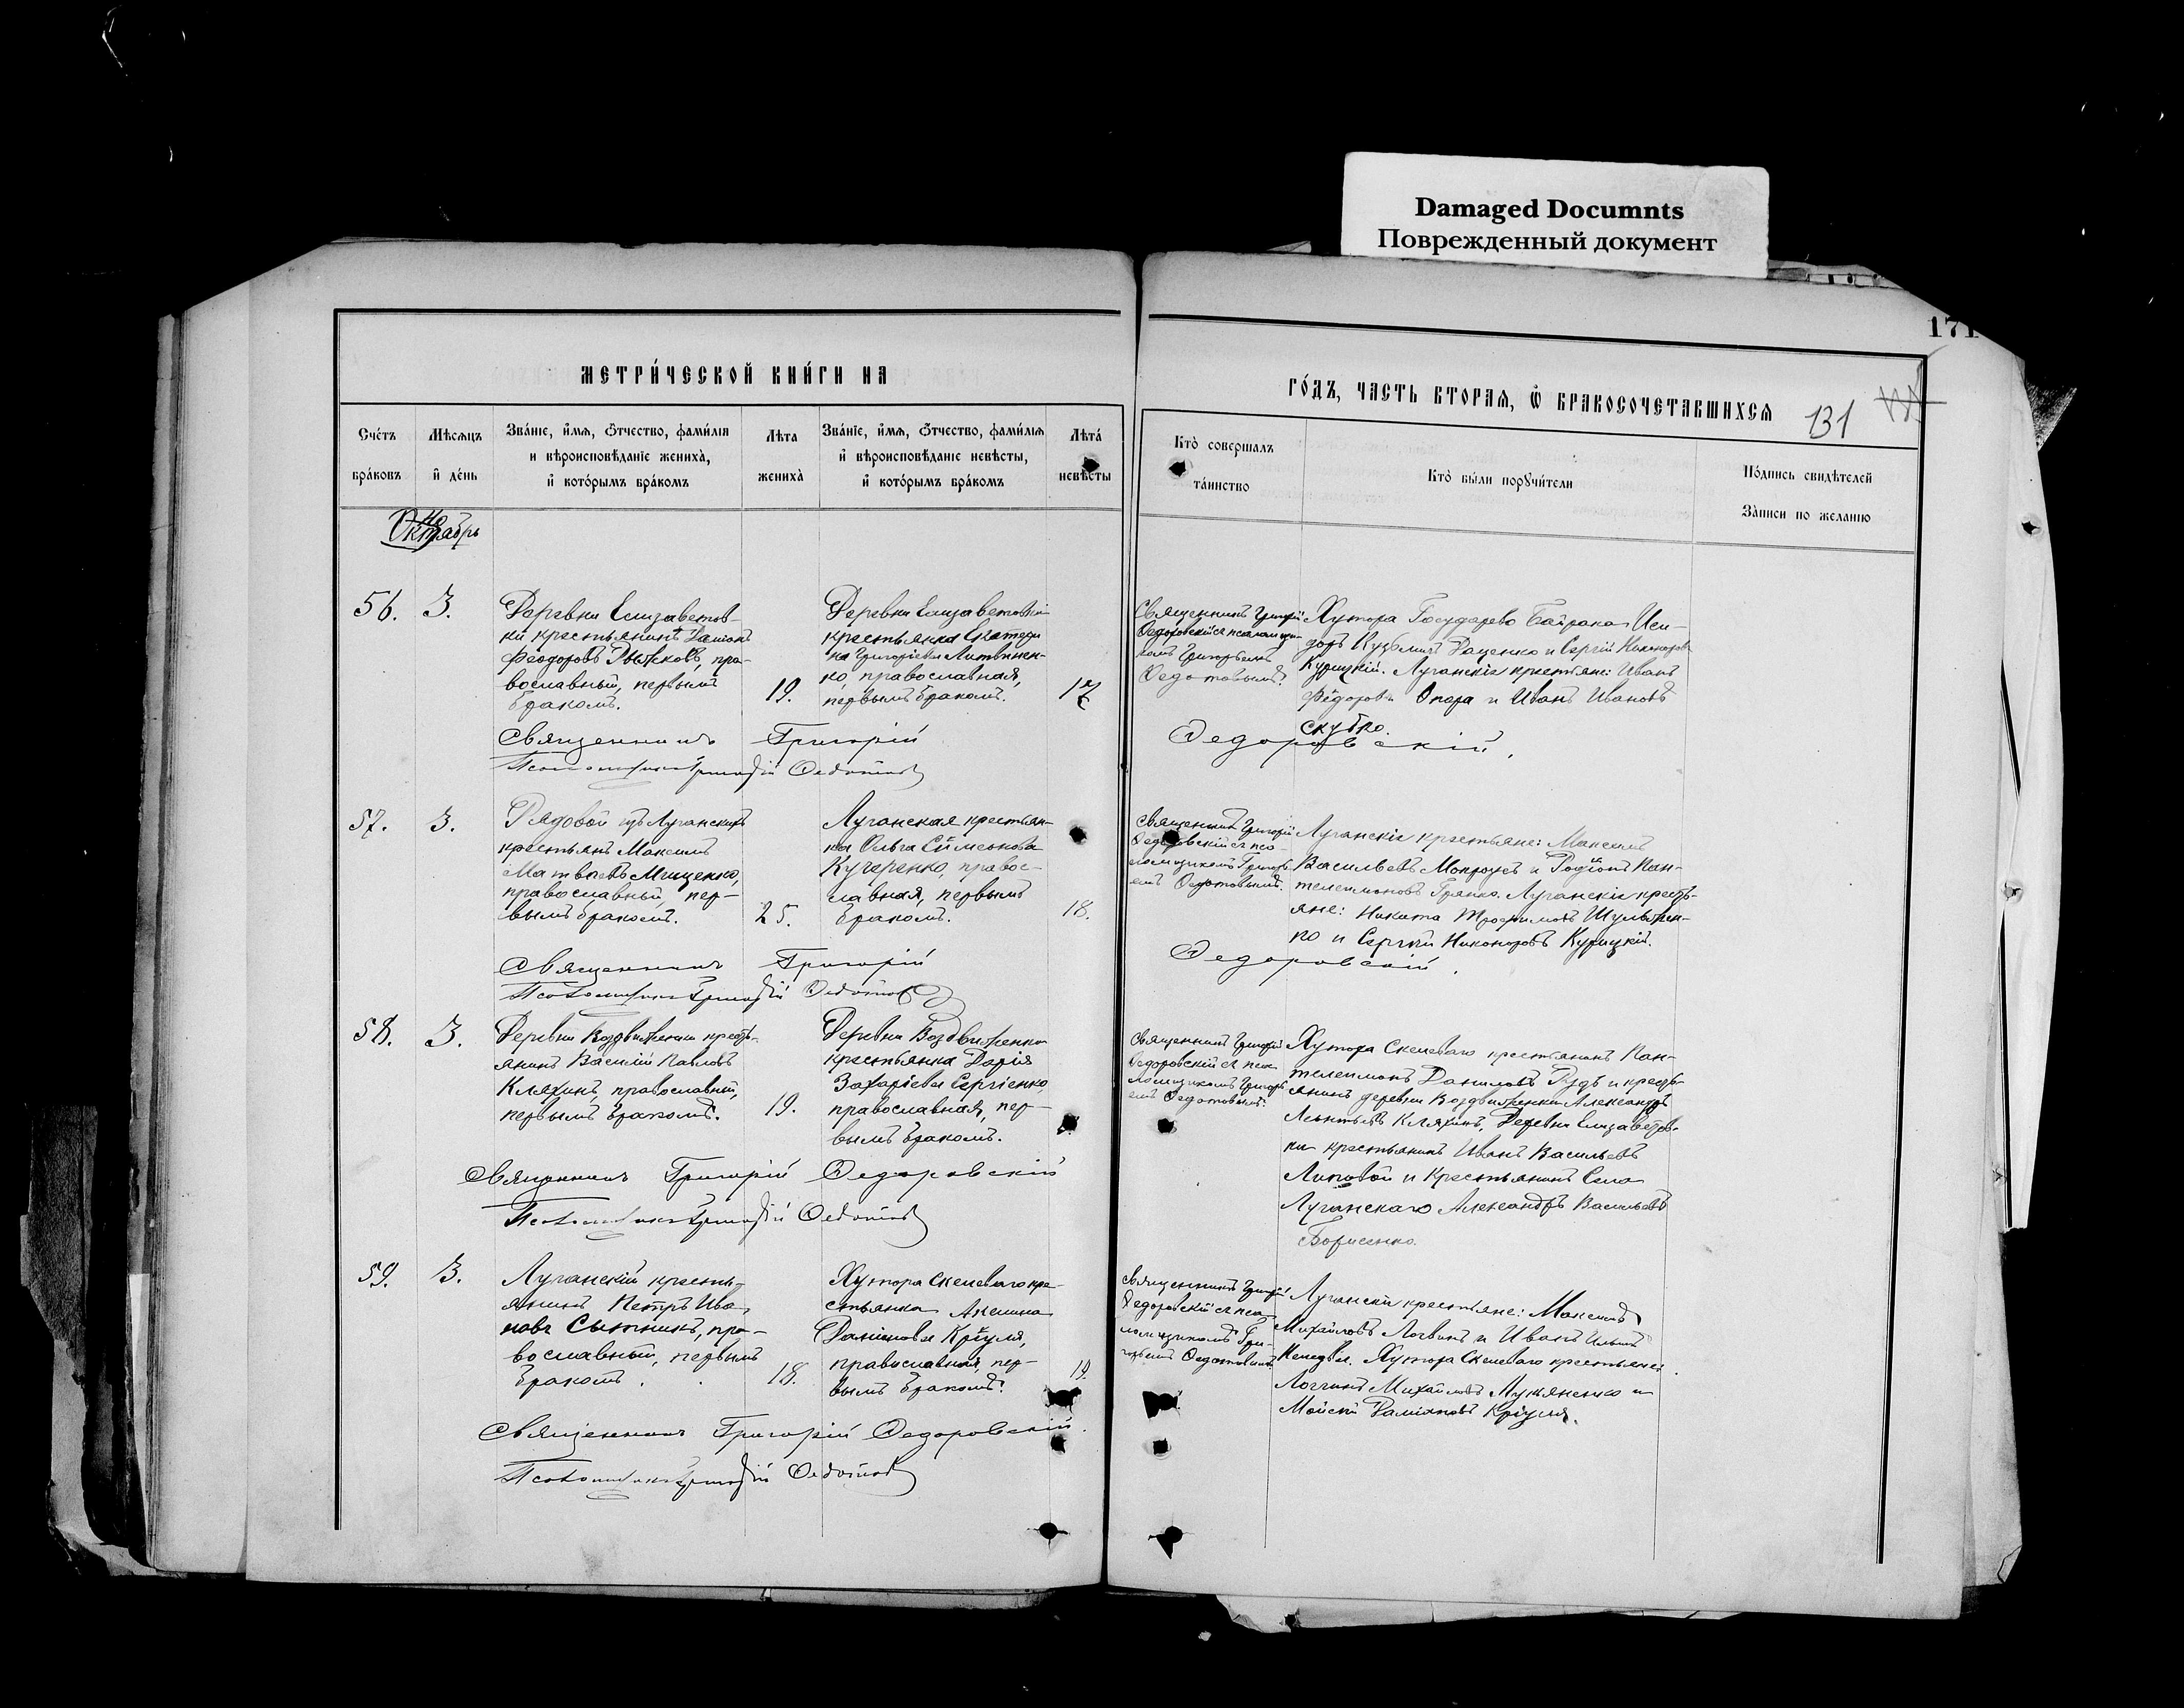 Damaged Documnts
Поврежденный документ
171
МЕТРИ́ЧЕСКОЙ КНИ́ГИ НА
ГО́ДЪ, ЧАСТЬ ВТОРАѦ, Ѽ БРАКОСОЧЕТАВШИХСѦ
131
Сче́тъ
бра́ковъ
Мѣсѧцъ
и҆ де́нь
Зва́нїе, и҆́мѧ, ѻ҆́тчество, фами́лїѧ
и вѣроисповѣ́данїе жениха̀,
и҆ кото́рымъ бра́комъ
Лѣта
жениха̀
Зва́нїе, и҆́мѧ, ѻ҆́тчество, фами́лїѧ
и҆ вѣроисповѣ́данїе невѣ́сты,
и҆ кото́рымъ бра́комъ
Лѣта́
невѣ́сты
Кто̀ совершалъ
та́инство
Кто̀ бы́ли порꙋчи́тели
По́дпись свидѣ́телей
За́писи по желанію
Октябрь
56.
3.
Деревни Елизаветов-
ки крестьянинъ Даміанъ
Феодоровъ Рыжковъ, пра-
вославный, первымъ
бракомъ.
19.
Деревни Елизаветовки
крестьянка Екатери-
на Григоріева Литвинен-
ко, православная,
первымъ бракомъ.
17
Священникъ Григорій
Федоровскій съ псаломщи-
комъ Григоріемъ
Федотовымъ.
Хутора Государево Байрака Иси-
доръ Кузьминъ Даценко и Сергій Никаноровъ
Курицкій. Луганскіе крестьяне: Иванъ
Фёдоровъ Опара и Иванъ Ивановъ
Скубко.
Священникъ Григорій Федоровскій.
Псаломщикъ Григорій Федотовъ
57.
3.
Рядовой изъ Луганскихъ
крестьянъ Максимъ
Матвѣевъ Мищенко,
православный, пер-
вымъ бракомъ.
25.
Луганская крестьян-
ка Ольга Симеонова
Кучеренко, правос-
лавная, первымъ
бракомъ.
18.
Священникъ Григорій
Федоровскій съ пса-
ломщикомъ Григорі-
емъ Федотовымъ.
Луганскіе крестьяне: Максимъ
Васильевъ Мокроусъ и Родіонъ Пан-
телеимоновъ Грянко. Луганскіе кресть-
яне: Никита Трофимовъ Шульжен-
ко и Сергѣй Никаноровъ Курицкій.
Священникъ Григорій Федоровскій.
Псаломщикъ Григорій Федотовъ
58.
3.
Деревни Воздвиженки кресть-
янинъ Василій Павловъ
Кляхинъ, православный,
первымъ бракомъ.
19.
Деревни Воздвиженки
крестьянка Дарія
Захаріева Сергіенко,
православная, пер-
вымъ бракомъ.
Священникъ Григорій
Федоровскій съ пса-
ломщикомъ Григорі-
емъ Федотовымъ.
Хутора Скелеваго крестьянинъ Пан-
телеимонъ Даниловъ Рудь и кресть-
янинъ деревни Воздвиженки Александръ
Леонтьевъ Кляхинъ. Деревни Елизаветов-
ки крестьянинъ Иванъ Васильевъ
Липовой и крестьянинъ Села
Луганскаго Александръ Васильевъ
Борисенко.
Священникъ Григорій Федоровскій
Псаломщикъ Григорій Федотовъ
59.
3.
Луганскій кресть-
янинъ Петръ Ива-
новъ Сытникъ, пра-
вославный, первымъ
бракомъ.
18.
Хутора Скелеваго кре-
стьянка Акилина
Даміанова Кріуля,
православная, пер-
вымъ бракомъ.
19.
Священникъ Григорій
Федоровскій съ пса-
ломщикомъ Гри-
горіемъ Федотовымъ
Луганскіе крестьяне: Максимъ
Михайловъ Логвинъ и Иванъ Ильинъ
Хутора Скелеваго крестьяне:
Логгинъ Михайловъ Лукяненко и
Моисей Даміановъ Кріуля.
Священникъ Григорій Федоровскій.
Псаломщикъ Григорій Федотовъ